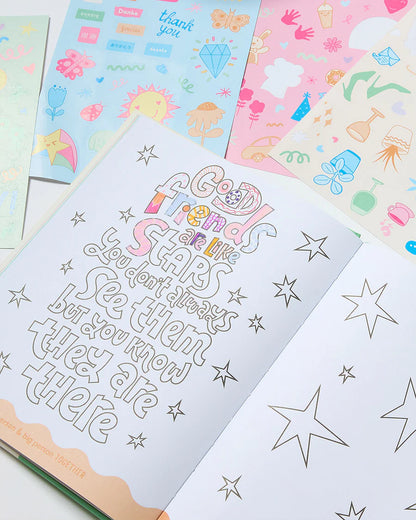 thank
you
Danke
Good
friends
are like
STARS
You don't always
See them
but you know
they are
there
person & big person TOGETHER